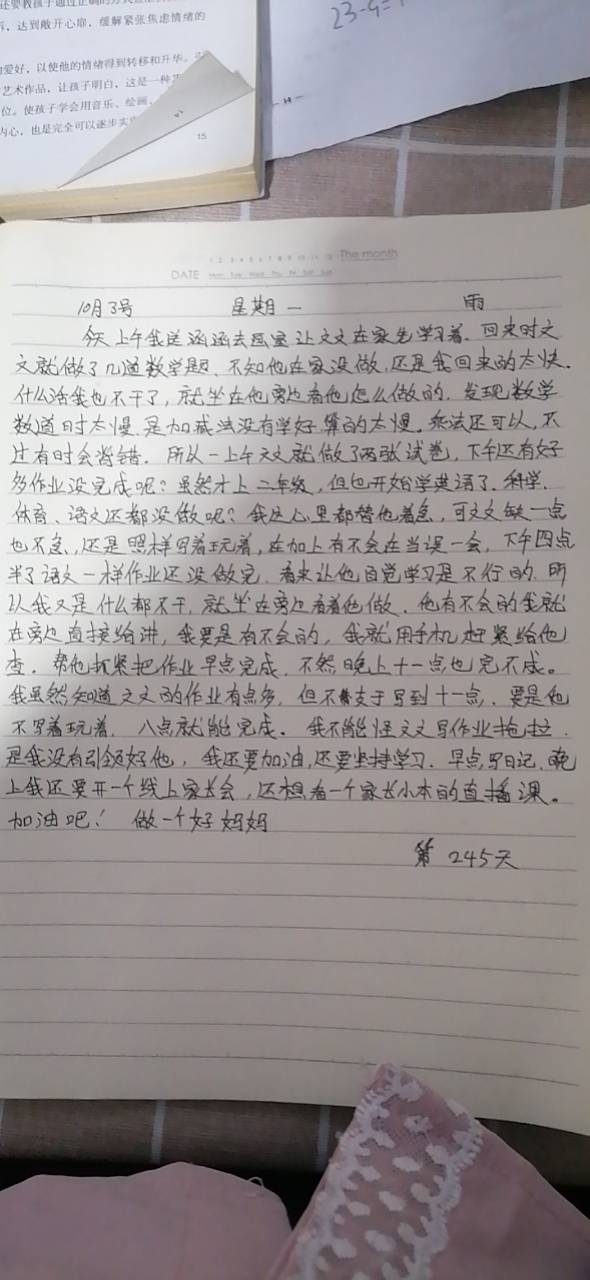 ，达到敞开心扉，缓解紧张焦虑情绪的
爱好，以使他的情绪得到转移和升华。
艺术作品，让孩子明白，这是一种
位。使孩子学会用音乐、绘画、
内心，也是完全可以逐步实
15
23-9=
The month
DATE Mon Tue Wed Thu Fri Sat Sun
10月3号 星期一 雨
今天上午我送涵涵去画室让文文在家先学习着．回来时文
文就做了几道数学题．不知他在家没做，还是我回来的太快．
什么活我也不干了，就坐在他旁边看他怎么做的．发现数学
数道时太慢．是加减法没有学好算的太慢．乘法还可以，不
过有时会背错．所以一上午文文就做了两张试卷，下午还有好
多作业没完成呢？虽然才上二年级，但也开始学英语了．科学．
体育、语文还都没做呢？我这心里都替他着急，可文文缺一点
也不急，还是照样写着玩着，在加上有不会在当误一会，下午四点
半了语文一样作业还没做完．看来让他自觉学习是不行的．所
以我又是什么都不干，就坐在旁边看着他做．他有不会的我就
在旁边直接给讲，我要是有不会的，我就用手机赶紧给他
查．帮他抓紧把作业早点完成．不然晚上十一点也完不成。
我虽然知道文文的作业有点多，但不至于写到十一点．要是他
不写着玩着．八点就能完成．我不能怪文文写作业拖拉．
是我没有引领好他，我还要加油，还要坚持学习．早点写日记．晚
上我还要开一个线上家长会，还想看一个家长小本的直播课。
加油吧！ 做一个好妈妈
第 245天